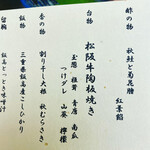 酢の物
秋鮭と菊花膾
紅葉餡
台物
松阪牛陶板焼き
玉葱 椎茸 青唐 南瓜
つけダレ 山葵 檸檬
香の物
割り干し大根 秋むらさき
飯物
三重県飯高産こしひかり
留椀
飯高とっとき味噌汁